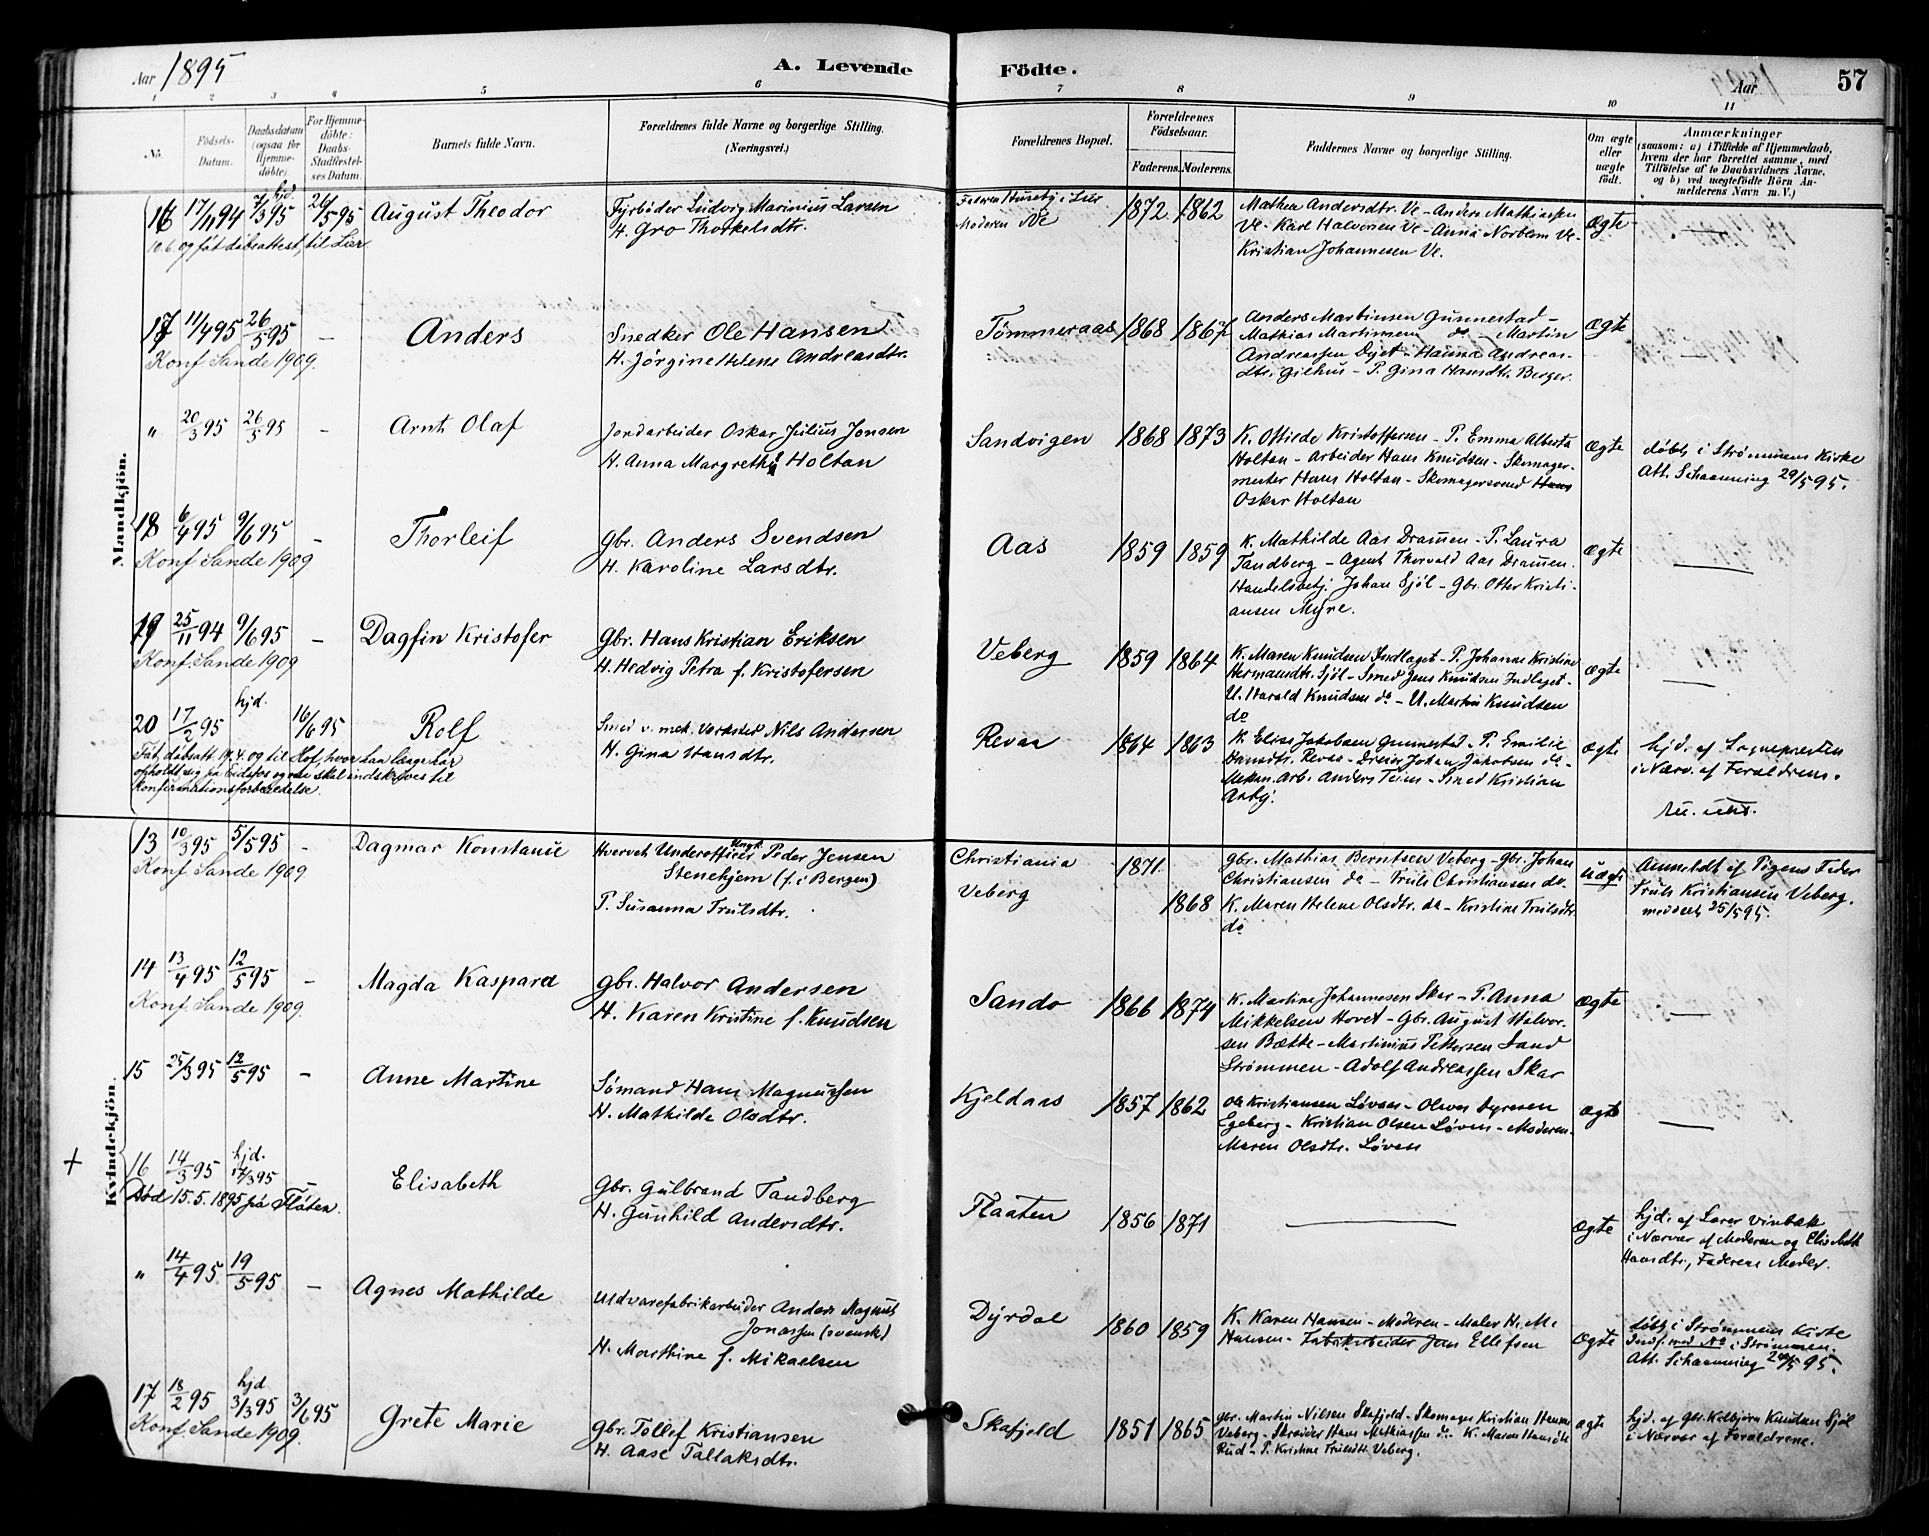 Aar 1895
A. Levende
Födte.
Aar
57
1 2 3 4 5 6 7 8 9 10 11
No.
Födsels-
Datum.
Daabsdatum
(ogsaa for
Hjemme-
döbte).
For Hjemme-
döbte:
Daabs-
Stadfæstel-
ses Datum.
Barnets fulde Navn.
Forældrenes fulde Navne og borgerlige Stilling.
(Næringsvei.)
Forældrenes Bopæl.
Forældrenes
Födselsaar.
Faderens. Moderens.
Faddernes Navne og borgerlige Stilling.
Om ægte
eller
uægte
født.
Anmærkninger
(saasom: a) i Tilfælde af Hjemmedaab,
hvem der har forrettet samme, med
Tilföielse af to Daabsvidners Navne,
og b) ved uægtefödte Börn An-
melderens Navn m. V.)
Mandkjön.
16 17/11 94 hjd. 7/3 95 26/5 95 August Theodor
10.6 og fåt dåbsattest, til Lier
Fyrbøder Ludvig Marinius Larsen
H. Gro Thorkelsdtr.
Faderen Huseby i Lier
Moderen Ve
1872 1862
Mathea Andersdtr. Ve - Anders Mathiassen
Ve - Karl Halvorsen Ve - Anna Norblom Ve -
Kristian Johannesen Ve.
Ægte
17 11/4 95 26/5 95 - Anders
Konf. Sande 1909.
Snedker Ole Hansen
H. Jörgine Helene Andreasdtr.
Tömmeraas 1868 1867
Anders Martinsen Gunnestad -
Mathias Martinsen do - Martin
Andreassen Dyet - Hanna Andreas-
dtr. Gilhus - P. Gina Hansdtr. Berger.
Ægte
" 20/3 95 26/5 95 - Arnt Olaf
Jordarbeider Oskar Julius Jonsen
H. Anna Margrethe Holtan
Sandvigen 1868 1873
K. Ottilde Kristoffersen - P. Emma Alberta
Holtan - Arbeider Hans Knudsen - Skomager-
mester Hans Holtan - Skomagersvend Hans
Oskar Holtan
Ægte
døbt i Strømmens Kirke
Att. Schaanning 29/5 95.
18 6/4 95 9/6 95 - Thorleif
Konf. Sande 1909
Gbr. Anders Svendsen
H. Karoline Larsdtr.
Aas 1859 1859
K. Mathilde Aas Drammen - P. Laura
Tandberg - Agent Thorvald Aas Drammen.
Handelsbetj. Johan Sjöl - Gbr. Otter Kristi-
ansen Myre.
Ægte
19 25/11 94 9/6 95 - Dagfin Kristofer
Konf. Sande 1909
Gbr. Hans Kristian Eriksen
H. Hedvig Petra f. Kristofersen
Veberg 1859 1864
K. Maren Knudsen Indlaget - P. Johanne Kristine
Hermansdtr. Sjöl - Smed Jens Knudsen Indlaget -
U. Harald Knudsen do - U. Martin Knudsen
do
Ægte
20 17/2 95 hjd. 16/6 95 Rolf
Fåt dåbsatt. 19.4. og til Hof, hvor han længe har
opholdt sig på Eidsfos og der skal indskrives til
Konfirmationsforberedelse.
Smed v. mek. Verksted Nils Andersen
H. Gina Hansdtr.
Revaa 1864 1863
K. Elise Jakobsen Gunnestad - P. Emilie
Hansdtr. Revaa - Dreier Johan Jakobsen do -
Mekan. Arb. Anders Teien - Smed Kristian
Aaby.
Ægte
hjd. af Sognepresten
i Nærv. af Forældrene.
Kvindekjön.
13 10/3 95 5/5 95 - Dagmar Konstanse
Konf. Sande 1909
Hvervet Underofficer Peder Jensen
Stenehjem (f. i Bergen)
P. Susanna Trulsdtr.
Christiania 1871
Veberg 1868
Gbr. Mathias Berntsen Veberg - Gbr. Johan
Christiansen do - Truls Christiansen do.
K. Maren Helene Olsdtr. do - Kristine Trulsdtr.
do
uægte
Anmeldt af Pigens Fader
Truls Kristiansen Veberg.
meddelt 25/5 95.
14 13/4 95 12/5 95 - Magda Kaspara
Konf. Sande 1909.
Gbr. Halvor Andersen
H. Karen Kristine f. Knudsen
Sando 1866 1874
K. Martine Johannesen Skar - P. Anna
Mikkelsen Hovet - Gbr. August Halvor-
sen Bætte - Martinius Pettersen Sand
Strømmen - Adolf Andreassen Skar
Ægte
15 25/3 95 12/5 95 - Anne Martine
Sømand Hans Magnussen
H. Mathilde Olsdtr.
Kjeldaas 1857 1862
Ole Kristiansen Løvaas - Oliver Syresen
Egeberg - Kristian Olsen Løvaas - Moderen -
Maren Olsdtr. Løvaas
Ægte
+ 16 14/3 95 hjd. 17/3 95 - Elisabeth
Død 15.5.1895 på Flåten.
Gbr. Gulbrand Tandberg
H. Gunhild Andersdtr.
Flaaten 1856 1871
Ægte
hjd. af Lærer Vinbæk
i Nærvær af Moderen og Elisabeth
Hansdtr, Faderens Moder.
" 14/4 95 19/5 95 - Agnes Mathilde
Uldvarefabrikarbeider Anders Magnus
Jonassen (svensk)
H. Marthine f. Mikaelsen
Dyrdal 1860 1859
K. Karen Hansen - Moderen - Maler H. M.
Hansen - Fabrikarbeider Jens Ellefsen
Ægte
døbt i Strømmens Kirke
Indf. med No i Strømmen.
Att. Schaanning 29/5 95.
17 18/2 95 hjd 3/3 95 3/6 95 Grete Marie
Konf. Sande 1909.
Gbr. Tollef Kristiansen
H. Aase Tallaksdtr.
Skafjeld 1851 1865
Gbr. Martin Nilsen Skafjeld - Skomager Kristian Hansen
Veberg - Skræder Hans Mathiassen do - K. Maren Hansdtr
Rud - P. Kristine Trulsdtr. Veberg.
ægte
hjd. af Gbr. Kelbjørn Knudsen Sjöl
i Nærvær af Forældrene.